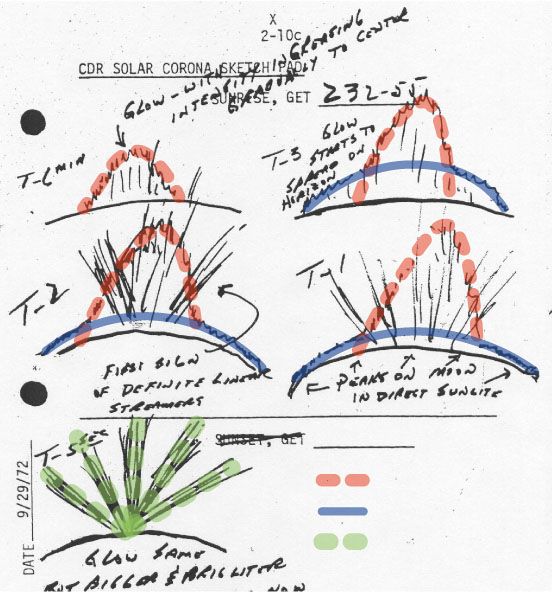 X
2-10c
CDR SOLAR CORONA SKETCH PAD
GLOW - WITH INCREASING
INTENSITY
GRADUALLY TO CENTER
SUNRISE, GET 232-55
T-6 MIN
T-3
GLOW
STARTS TO
SPREAD ON
HORIZON
T-2
T-1
FIRST SIGN
OF DEFINITE LINEAR
STREAMERS
PEAKS ON MOON
IN DIRECT SUNLITE
T-5 SEC
SUNSET, GET
DATE 9/29/72
GLOW SAME
BUT BIGGER & BRIGHTER
NOW